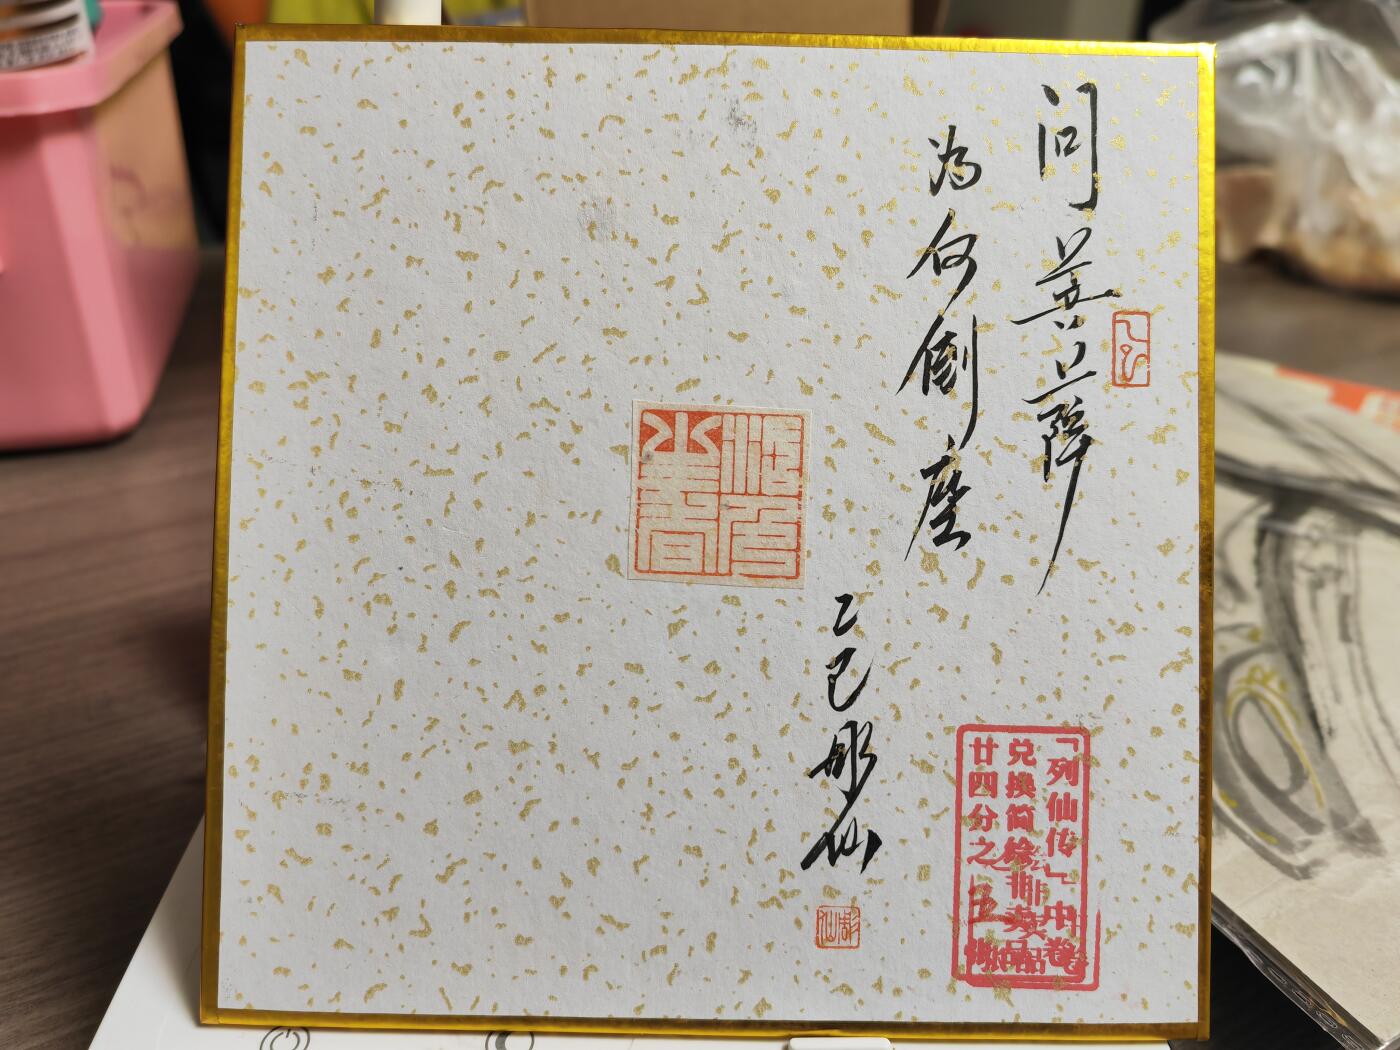 问菩萨
为何倒座
乙巳彫仙
彫仙
「列仙传」中卷
兑换简绘非卖品
廿四分之五